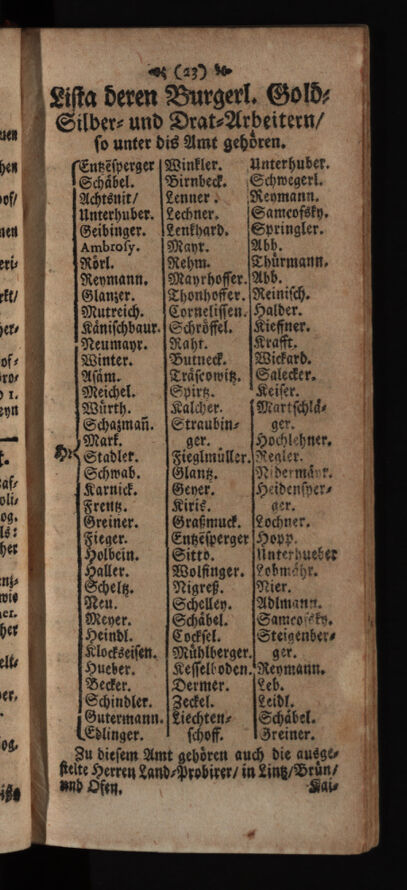 (23)
Lista deren Burgerl. Gold-
Silber- und Drat-Arbeitern/
so unter dis Amt gehören.
Hr.
Entzesperger
Schäbel.
Achtsnit/
Unterhuber.
Geibinger.
Ambrosy.
Rörl.
Reymann.
Glanzer.
Mutreich.
Känischbaur.
Neumayr.
Winter.
Asam.
Meichel.
Würth.
Schazmañ.
Mark.
Stadler.
Schwab.
Karnick.
Frentz.
Greiner.
Fieger.
Holbein.
Haller.
Scheltz.
Neu.
Meyer.
Heindl.
Klockseisen.
Hueber.
Becker.
Schindler.
Gutermann.
Edlinger.
Winkler.
Birnbeck.
Lenner.
Lechner.
Lenkhard.
Mayr.
Rehm.
Mayrhoffer.
Thonhoffer.
Cornelissen.
Schröffel.
Raht.
Butneck.
Träscowitz.
Spirtz.
Kalcher.
Straubin-
ger.
Fieglmüller.
Glantz.
Geyer.
Kiris.
Graßmuck.
Entzesperger
Sitto.
Wolfinger.
Nigreß.
Schelley.
Schäbel.
Cocksel.
Mühlberger.
Kesselboden.
Dermer.
Zeckel.
Liechten-
schoff.
Unterhuber.
Schwegerl.
Reymann.
Samcofsky.
Springler.
Abb.
Thürmann.
Abb.
Reinisch.
Halder.
Kieffner.
Krafft.
Wickard.
Salecker.
Keiser.
Martschlä-
ger.
Hochlehner.
Regler.
Nidermäyr.
Heidensper-
ger.
Lochner.
Hopp.
Unterhueber
Lobmähr.
Nier.
Adlmann.
Samcofsky.
Steigenber-
ger.
Reymann.
Leb.
Leidl.
Schäbel.
Greiner.
Zu diesem Amt gehören auch die ausge-
stelte Herren Land-Probirer/ in Lintz/Brün/
und Ofen.
Kai-